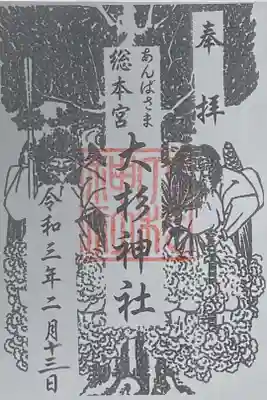 奉拝
あんばさま
総本宮
大杉神社
令和三年二月十三日